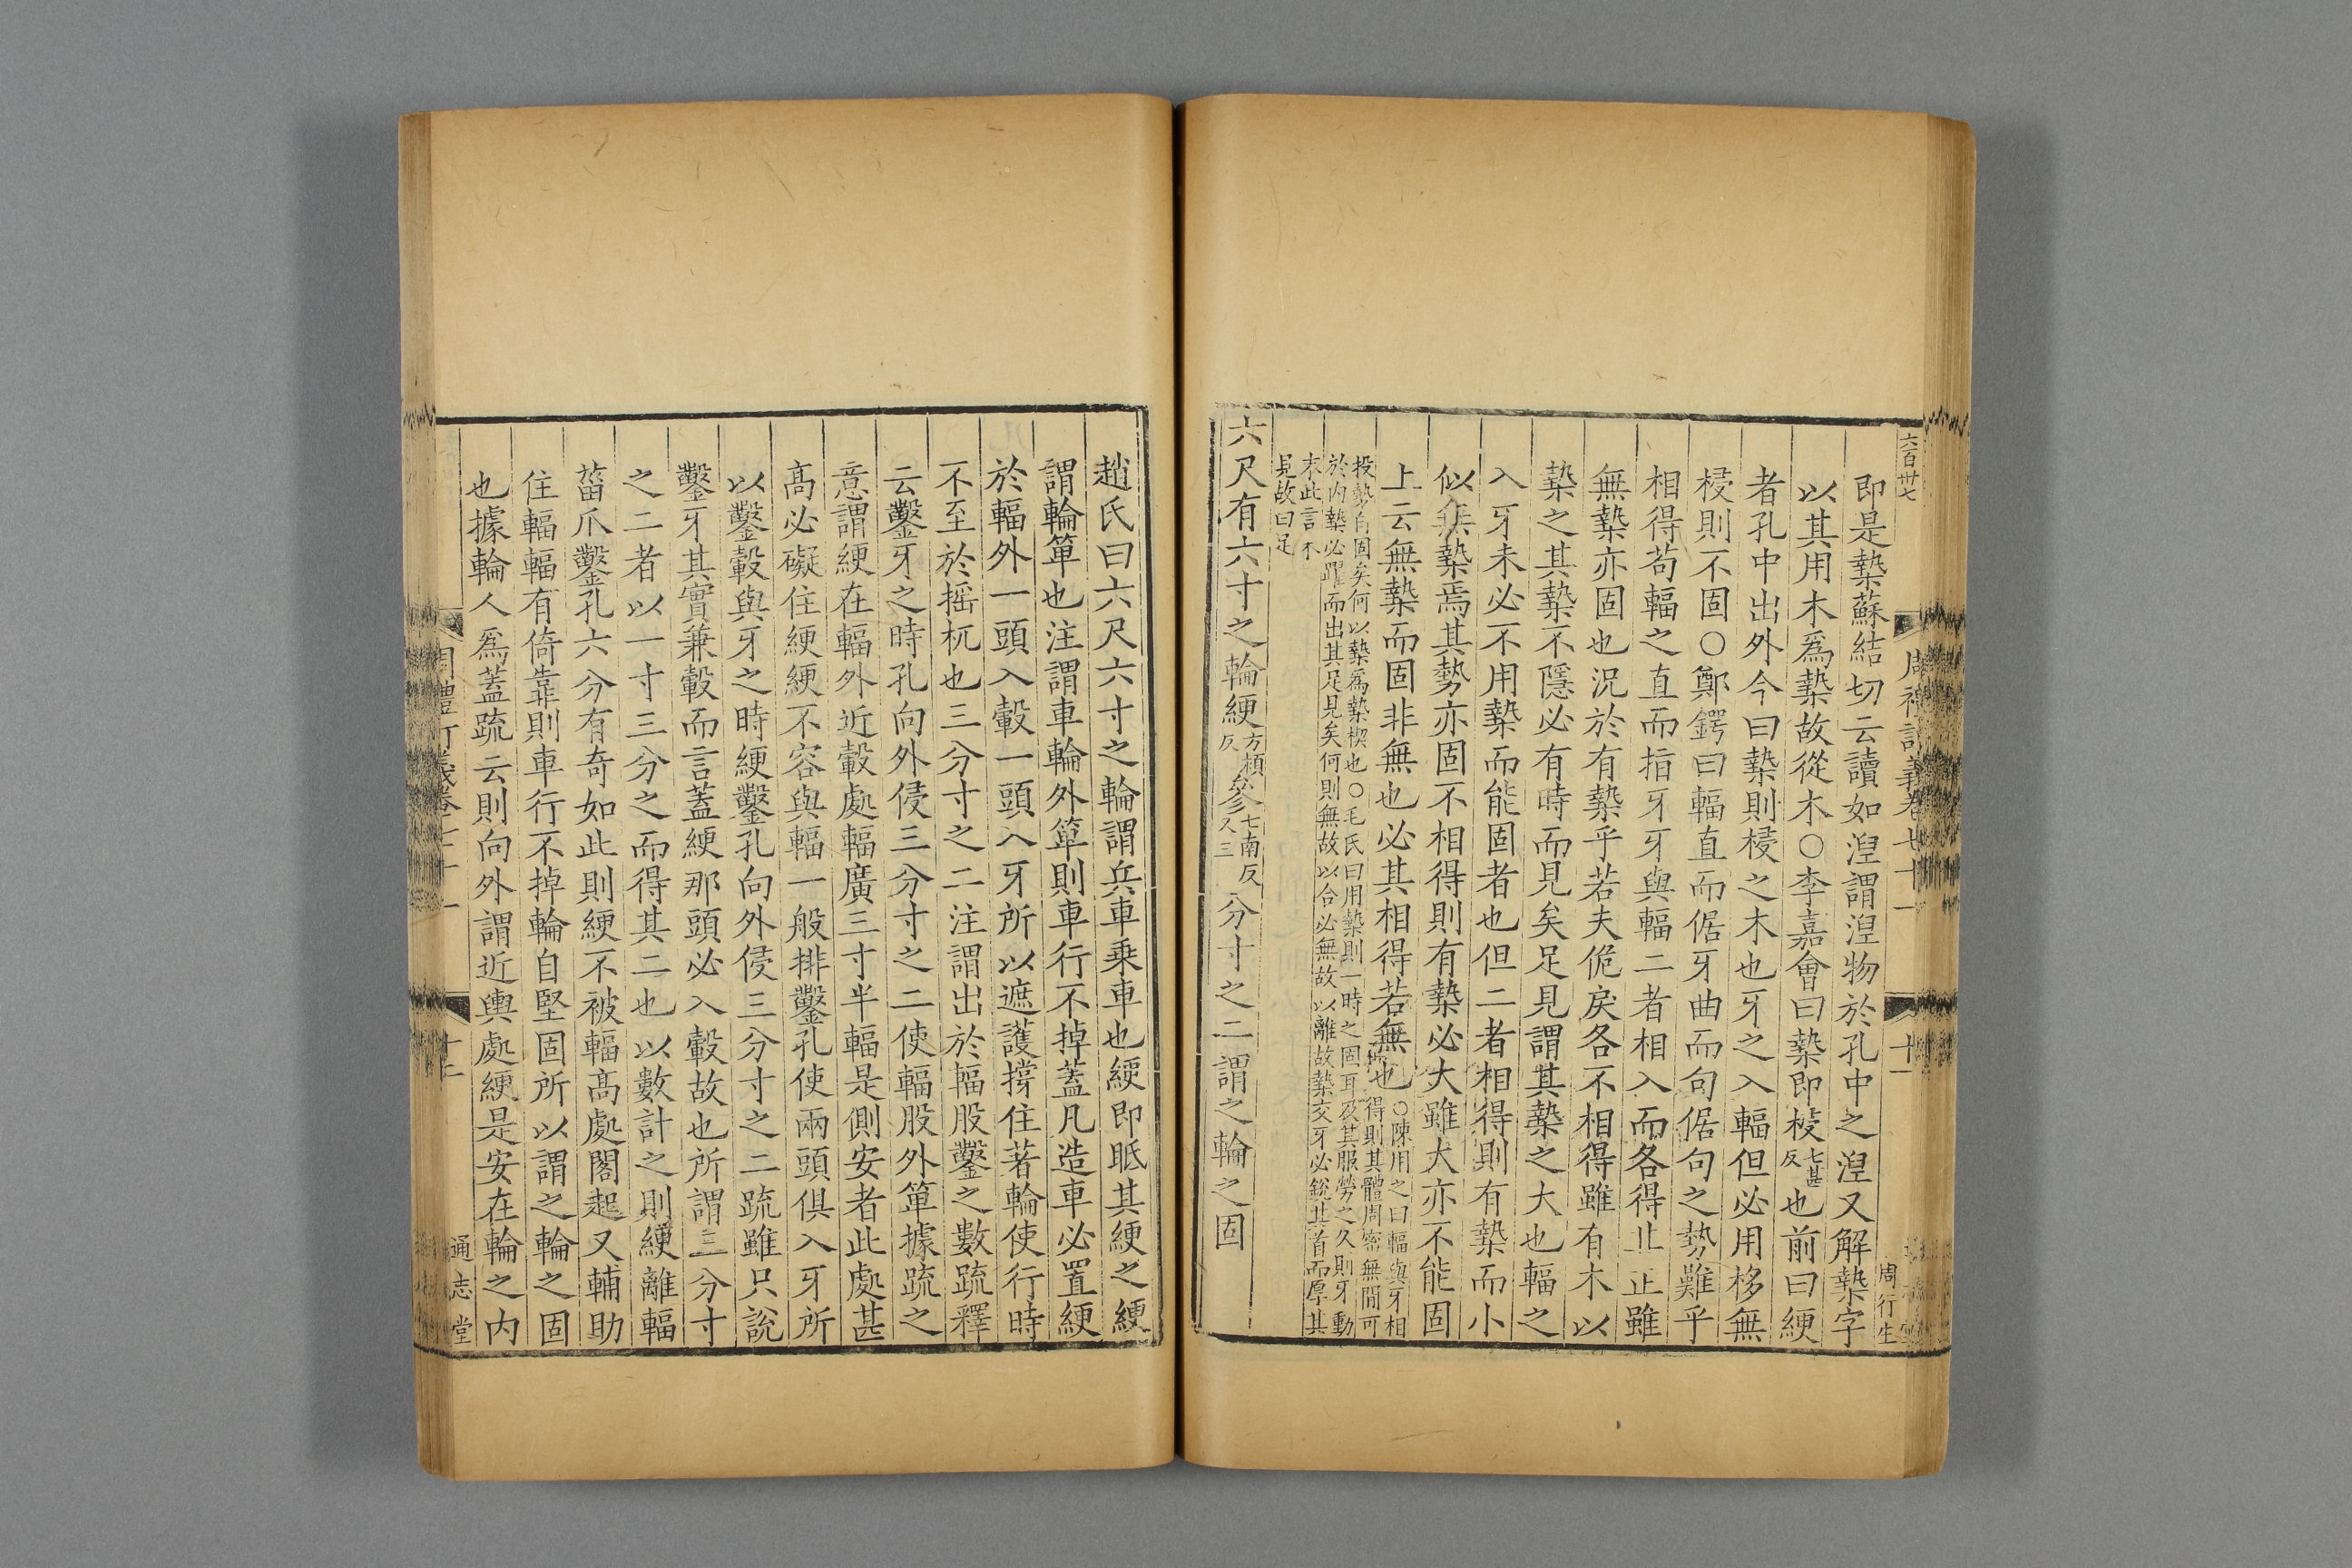 六百卅七
周禮訂義卷七十一
十一
周行生
即是槷蘇結切云讀如涅謂涅物於孔中之涅又解槷字
以其用木爲槷故從木○李嘉會曰槷即梫七甚反也前曰綆
者孔中出外今曰槷則梫之木也牙之入輻但必用移無
梫則不固○鄭鍔曰輻直而倨牙曲而句倨句之勢難乎
相得苟輻之直而指牙牙與輻二者相入而各得止正雖
無槷亦固也況於有槷乎若夫佹戾各不相得雖有木以
槷之其槷不隱必有時而見矣足見謂其槷之大也輻之
入牙未必不用槷而能固者也但二者相得則有槷而小
似無槷焉其勢亦固不相得則有槷必大雖大亦不能固
上云無槷而固非無也必其相得若無也○陳用之曰輻與牙相
得則其體周密無閒可
投勢自固矣何以槷爲槷楔也○毛氏曰用槷則一時之固耳及其服勞之久則牙動
於内槷必躍而出其足見矣何則無故以合必無故以離故槷交牙必銳其首而厚其
末此言不
見故曰足
六尺有六寸之輪綆方頴反參七南反又三分寸之二謂之輪之固
趙氏曰六尺六寸之輪謂兵車乗車也綆即眡其綆之綆
謂輪箄也注謂車輪外箄則車行不掉蓋凡造車必置綆
於輻外一頭入轂一頭入牙所以遮護撐住著輪使行時
不至於摇杌也三分寸之二注謂出於輻股鑿之數疏釋
云鑿牙之時孔向外侵三分寸之二使輻股外箄據疏之
意謂綆在輻外近轂處輻廣三寸半輻是側安者此處甚
高必礙住綆綆不容與輻一般排鑿孔使兩頭俱入牙所
以鑿轂與牙之時綆鑿孔向外侵三分寸之二疏雖只說
鑿牙其實兼轂而言蓋綆那頭必入轂故也所謂三分寸
之二者以一寸三分之而得其二也以數計之則綆離輻
菑爪鑿孔六分有奇如此則綆不被輻高處閣起又輔助
住輻輻有倚靠則車行不掉輪自堅固所以謂之輪之固
也據輪人爲蓋疏云則向外謂近輿處綆是安在輪之内
周禮訂義卷七十一
十二
通志堂